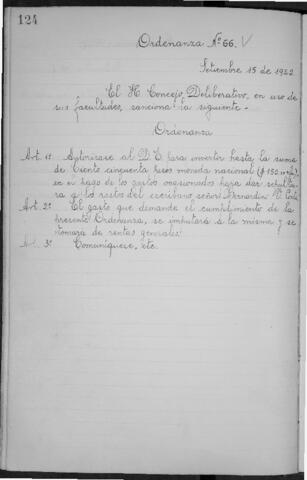 124
Ordenanza Nº 66.
Setiembre 15 de 1922
El H Concejo Deliberativo, en uso de
sus facultades, sanciona la siguiente -
Ordenanza
Art. 1º Autorizase al D. E. para invertir hasta la suma
de Ciento cincuenta pesos moneda nacional ($ 150 m/n),
en el pago de los gastos ocasionados para dar sepultu
ra a los restos del escribano, señor Bernardino
Art. 2º El gasto que demande el cumplimiento de la
presente Ordenanza, se imputará a la misma y se
tomará de rentas generales.
Art. 3º Comuníquese, etc.